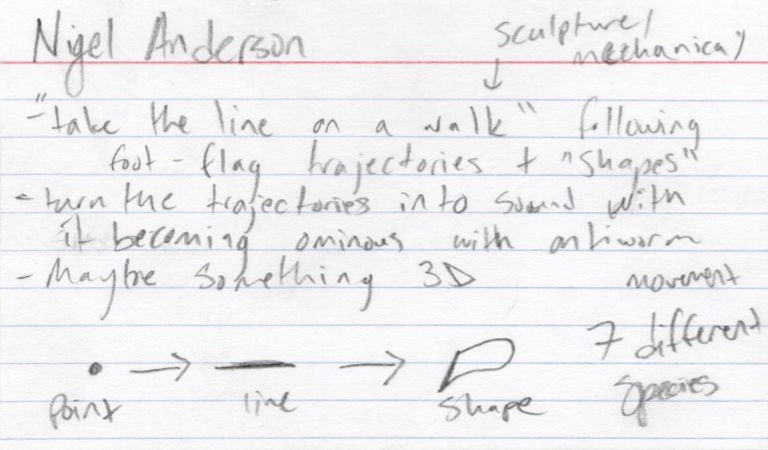 Nigel Anderson
sculpture/
mechanical
- "take the line on a walk" following
foot-flag trajectories + "shapes"
- turn the trajectories into sound with
it becoming ominous with antiworm
movement
- Maybe something 3D
7 different
species
point
line
shape